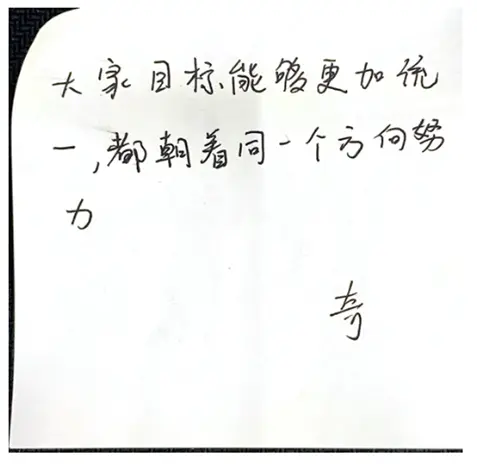 大家目标能够更加统
一,都朝着同一个方向努
力
奇